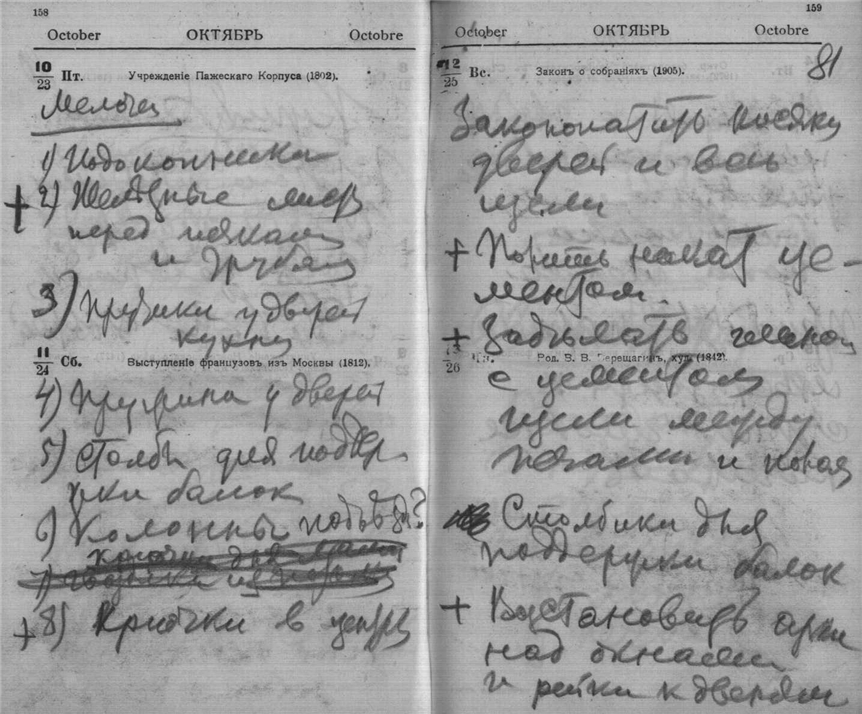 158
October ОКТЯБРЬ Octobre
10/23 Пт. Учрежденіе Пажескаго Корпуса (1802).
Мелочи
1) Подоконники
+ 2) Железные листы
перед печами
и трубами
3) Крючки у дверей
кухни
11/24 Сб. Выступленіе французовъ изъ Москвы (1812).
4) Пружина у дверей
5) Столбы для поддер
жки балок
6) Колонны подъезда?
крючки для
7)
+ 8) Крючки в
159
October ОКТЯБРЬ Octobre
12/25 Вс. Законъ о собраніяхъ (1905).
81
Законопатить косяки
дверей и все
щели
+ накат це-
ментом.
+ Забивать
13/26 Пн. Род. В. В. Верещагинъ, худ. (1842).
с цементом
щели между
печами и
Столбики для
поддержки балок
+ Восстановить арки
над окнами
и рейки к дверям